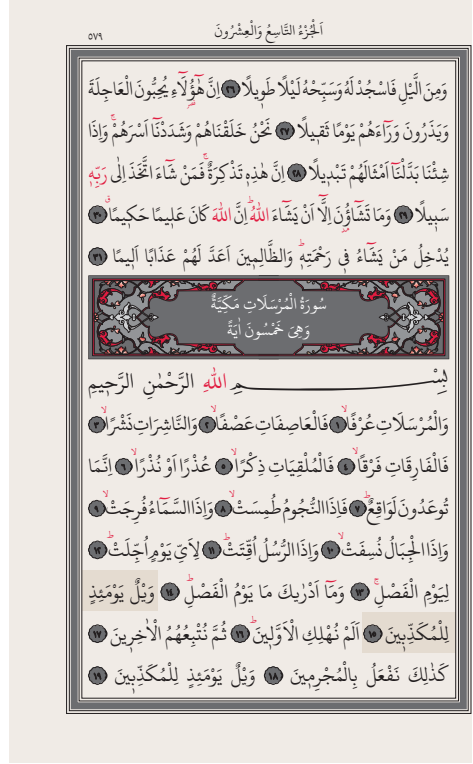 اَلْجُزْءُ التَّاسِعُ وَالْعِشْرُونَ
٥٧٩
وَمِنَ الَّيْلِ فَاسْجُدْ لَهُ وَسَبِّحْهُ لَيْلًا طَوِيلًا ﴿٢٦﴾ اِنَّ هٰٓؤُ۬لَٓاءِ يُحِبُّونَ الْعَاجِلَةَ
وَيَذَرُونَ وَرَٓاءَهُمْ يَوْمًا ثَقِيلًا ﴿٢٧﴾ نَحْنُ خَلَقْنَاهُمْ وَشَدَدْنَٓا اَسْرَهُمْۚ وَاِذَا
شِئْنَا بَدَّلْنَٓا اَمْثَالَهُمْ تَبْدِيلًا ﴿٢٨﴾ اِنَّ هٰذِهٖ تَذْكِرَةٌۚ فَمَنْ شَٓاءَ اتَّخَذَ اِلٰى رَبِّهٖ
سَبِيلًا ﴿٢٩﴾ وَمَا تَشَٓاؤُ۫نَ اِلَّٓا اَنْ يَشَٓاءَ اللّٰهُۜ اِنَّ اللّٰهَ كَانَ عَلِيمًا حَكِيمًاۗ ﴿٣٠﴾
يُدْخِلُ مَنْ يَشَٓاءُ فٖى رَحْمَتِهٖۜ وَالظَّالِمٖينَ اَعَدَّ لَهُمْ عَذَابًا اَلٖيمًا ﴿٣١﴾
سُورَةُ الْمُرْسَلَاتِ مَكِّيَّةٌ
وَهِىَ خَمْسُونَ اٰيَةً
بِسْمِ اللّٰهِ الرَّحْمٰنِ الرَّحٖيمِ
وَالْمُرْسَلَاتِ عُرْفًاۙ ﴿١﴾ فَالْعَاصِفَاتِ عَصْفًاۙ ﴿٢﴾ وَالنَّاشِرَاتِ نَشْرًاۙ ﴿٣﴾
فَالْفَارِقَاتِ فَرْقًاۙ ﴿٤﴾ فَالْمُلْقِيَاتِ ذِكْرًاۙ ﴿٥﴾ عُذْرًا اَوْ نُذْرًاۙ ﴿٦﴾ اِنَّمَا
تُوعَدُونَ لَوَاقِعٌۜ ﴿٧﴾ فَاِذَا النُّجُومُ طُمِسَتْۙ ﴿٨﴾ وَاِذَا السَّمَٓاءُ فُرِجَتْۙ ﴿٩﴾
وَاِذَا الْجِبَالُ نُسِفَتْۙ ﴿١٠﴾ وَاِذَا الرُّسُلُ اُقِّتَتْۜ ﴿١١﴾ لِاَىِّ يَوْمٍ اُجِّلَتْۜ ﴿١٢﴾
لِيَوْمِ الْفَصْلِۚ ﴿١٣﴾ وَمَٓا اَدْرٰيكَ مَا يَوْمُ الْفَصْلِۜ ﴿١٤﴾ وَيْلٌ يَوْمَئِذٍ
لِلْمُكَذِّبٖينَ ﴿١٥﴾ اَلَمْ نُهْلِكِ الْاَوَّلٖينَۜ ﴿١٦﴾ ثُمَّ نُتْبِعُهُمُ الْاٰخِرٖينَ ﴿١٧﴾
كَذٰلِكَ نَفْعَلُ بِالْمُجْرِمٖينَ ﴿١٨﴾ وَيْلٌ يَوْمَئِذٍ لِلْمُكَذِّبٖينَ ﴿١٩﴾